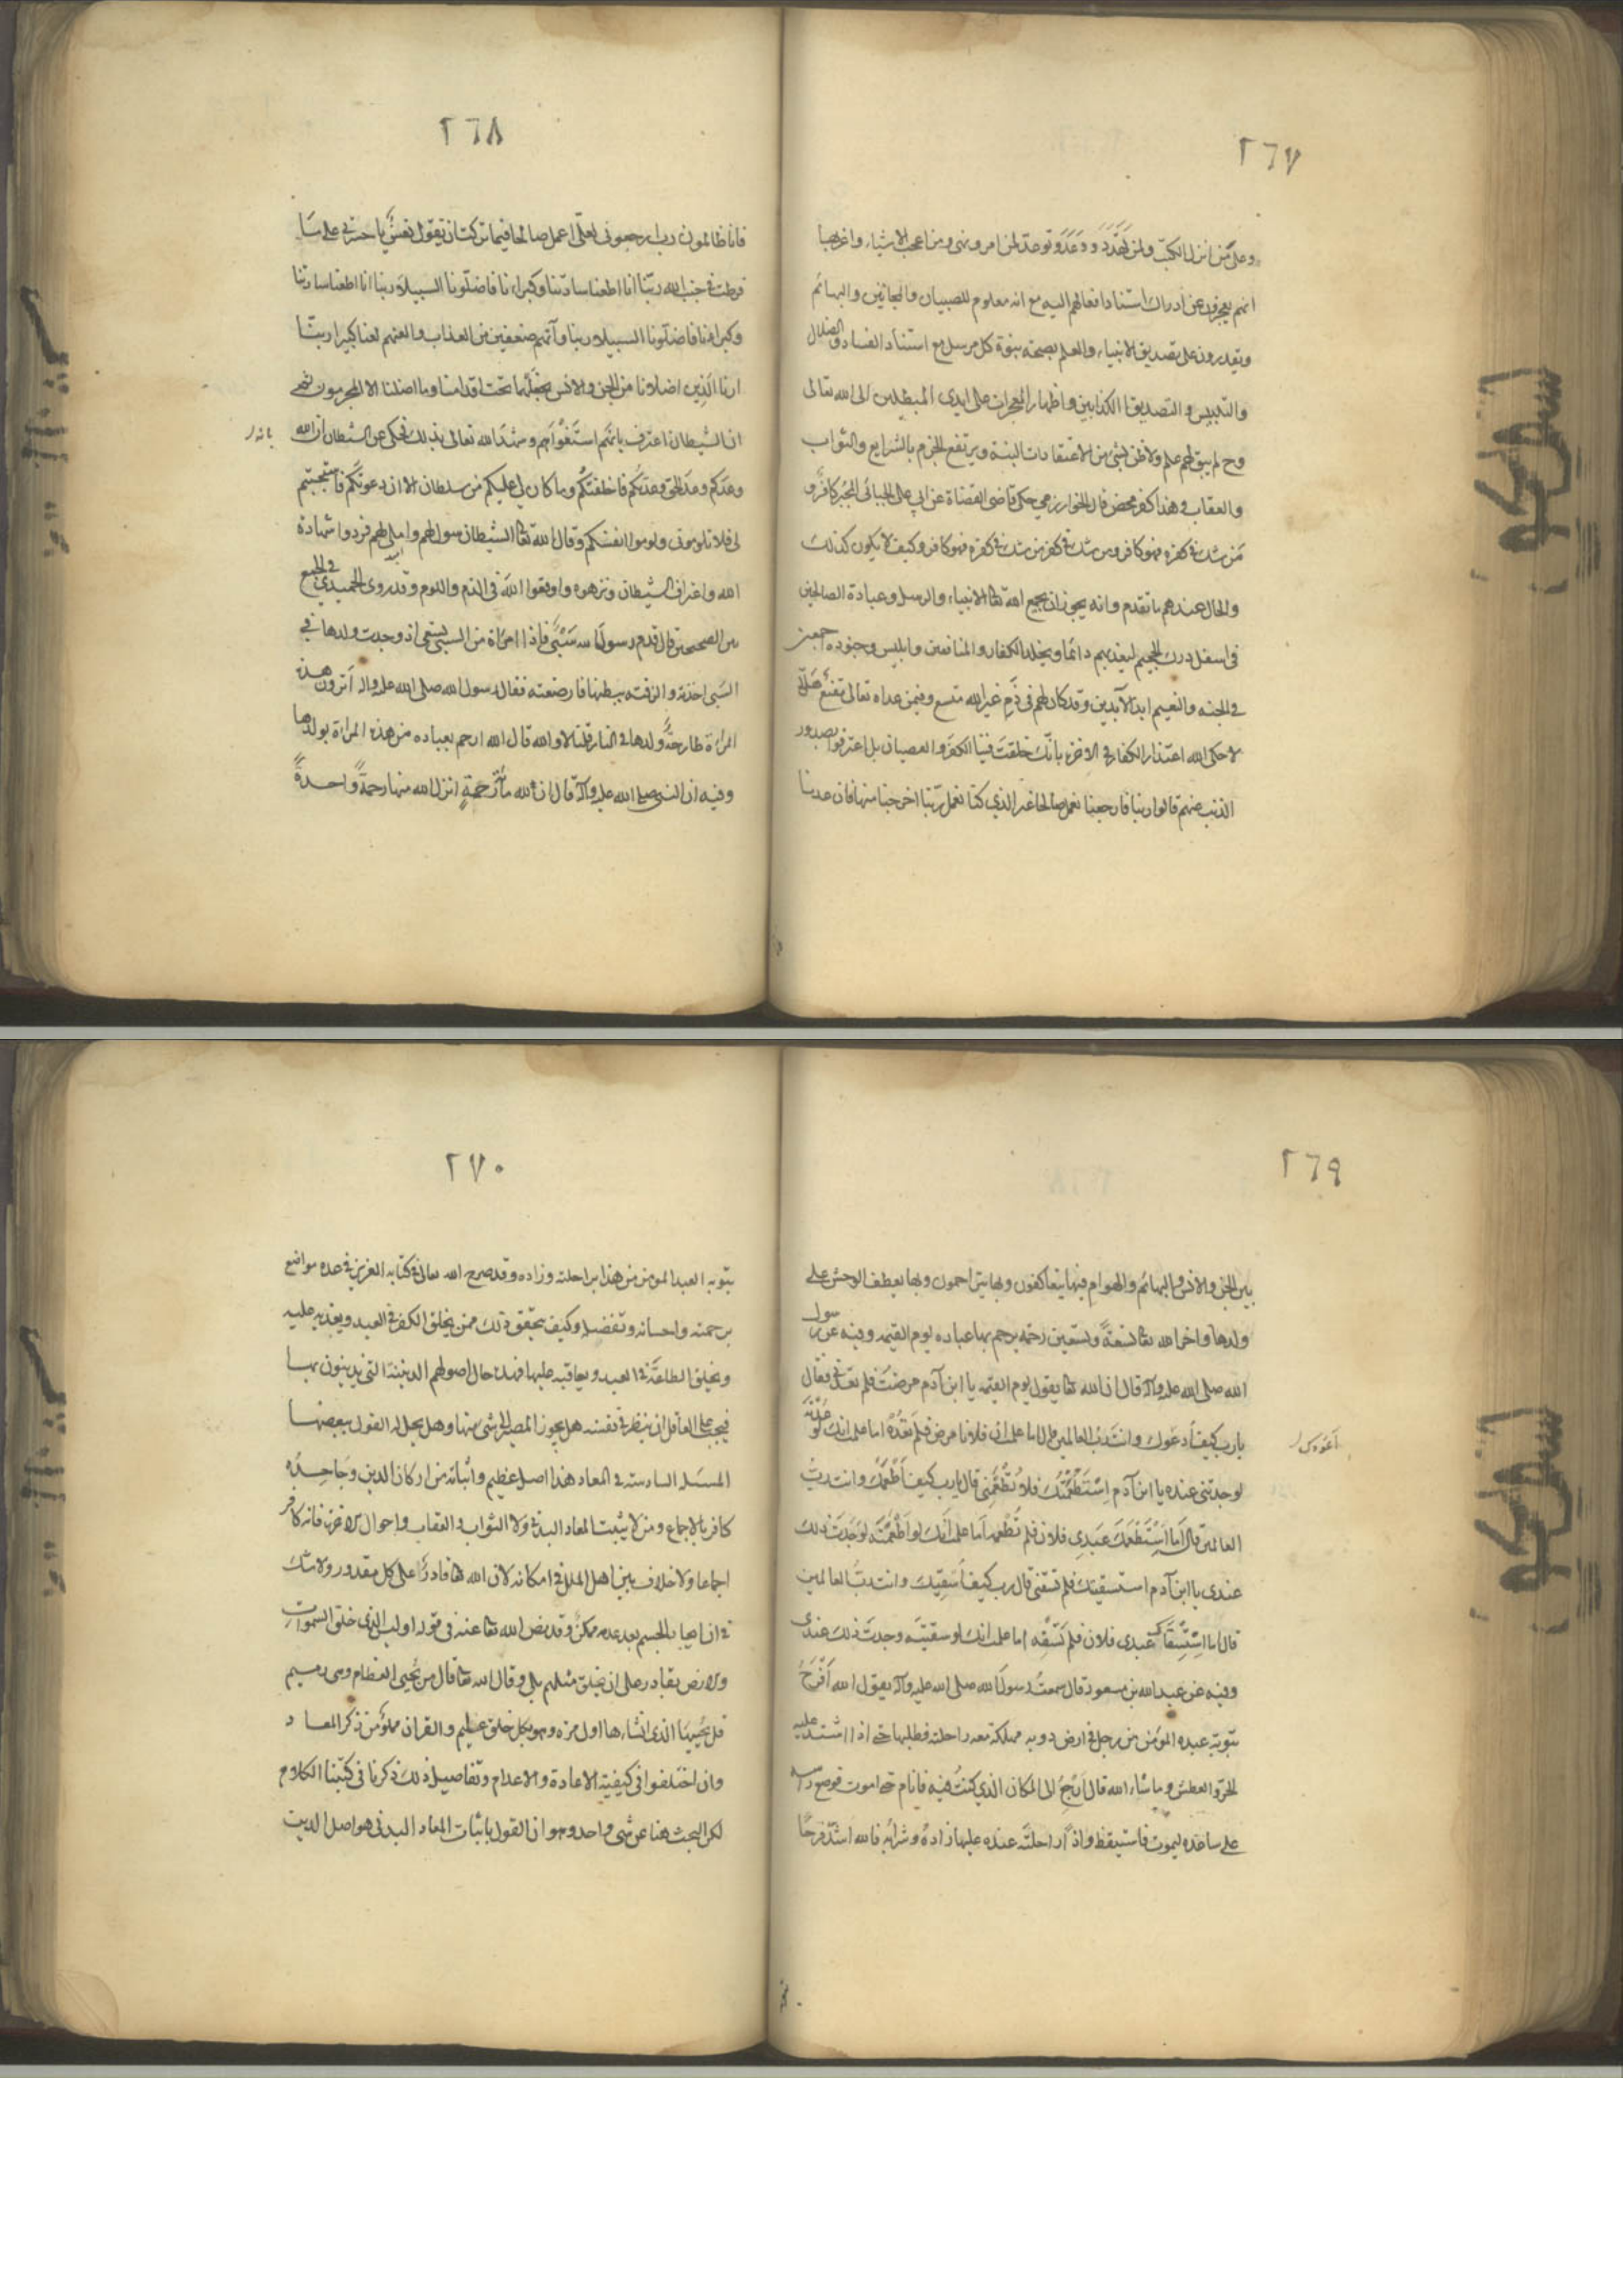 ٢٦٧
وعلى من انزل الكتب ولمن تهدد ووعد وتوعد لمن امر ونهى ومن اعجب الاشياء واغربها
انهم يعجزون عن ادراك استناد افعالهم اليهم مع انه معلوم للصبيان والمجانين والبهائم
ويقدرون على تصديق الانبياء والعلم بصحة نبوة كل مرسل مع استناد الفساد والضلال
والتلبيس والتصديق الكذابين واظهار المعجزات على ايدى المبطلين الى الله تعالى
وح لم يبق لهم علم ولا ظن بشئ من الاعتقادات البتة ويرتفع الجزم بالشرايع والثواب
والعقاب وهذا كفر محض قال الخوارزمي حكى قاضى القضاة عن ابي على الجبائى المجبر كافر و
من شك في كفره فهو كافر ومن شك في كفر من شك في كفره فهو كافر وكيف لا يكون كذلك
والحال عندهم ما تقدم وانه يجوز ان يجمع الله تعا الانبياء والرسل وعبادة الصالحين
فى اسفل درك الجحيم ليعذبهم دائما ويخلد الكفار والمنافقين وابليس وجنوده
في الجنه والنعيم ابد الآبدين وقد كان لهم فى ذم غير الله متسع وفيمن عداه تعالى
حكى الله اعتذار الكفار في الاخرة بانك خلقت فينا الكفر والعصيان بل اعترفوا بصدور
الذنب منهم قالوا ربنا فارجعنا نعمل صالحا غير الذي كنا نعمل ربنا اخرجنا منها فان عدنا
٢٦٨
فانا ظالمون رب ارجعونى لعلى اعمل صالحا فيما تركت ان تقول نفس يا حسرتى على ما
فرطت في جنب الله ربنا انا اطعنا سادتنا وكبراءنا فاضلونا السبيلا ربنا انا اطعنا سادتنا
وكبراءنا فاضلونا السبيلا ربنا وآتهم ضعفين من العذاب والعنهم لعنا كبيرا ربنا
ارنا الذين اضلانا من الجن والانس نجعلهما تحت اقدامنا وما اضلنا الا المجرمون
ان الشيطان اعترف بانه استغواهم وشهد الله تعالى بذلك فحكى عن الشيطان ان الله
وعدكم وعد الحق ووعدتكم فاخلفتكم وما كان لي عليكم من سلطان الا ان دعوتكم فاستجبتم
لى فلا تلومونى ولوموا انفسكم وقال الله تعا الشيطان سول لهم واملى لهم فردوا شهادة
الله واعتراف الشيطان ونزهوه واوقعوا الله فى الذم واللوم وقد روى الحميدي في الجمع
بين الصحيحين قال قدم رسول الله سبى فاذا امراة من السبى تسعى اذ وجدت ولدها في
السبى اخذته والزقته ببطنها فارضعته فقال رسول الله صلى الله عليه واله اترون هذه
المراة طارحة ولدها في النار قلنا لا والله قال الله ارحم بعباده من هذه المراة بولدها
وفيه ان النبى صلى الله عليه وآله قال ان لله مأة رحمة انزل الله منها رحمة واحدة
٢٦٩
بين الجن والانس والبهائم والهوام فبها يتعاطفون وبها يتراحمون وبها يعطف الوحش على
ولدها واخر الله تعا تسعة وتسعين رحمة يرحم بها عباده يوم القيمة وفيه عن رسول
الله صلى الله عليه وآله قال ان الله تعا يقول يوم القيمه يا ابن آدم مرضت فلم تعدنى فقال
يا رب كيف اعودك وانت رب العالمين قال اما علمت ان فلانا مرض فلم تعده اما علمت انك لو عدته
لوجدتنى عنده يا ابن آدم استطعمتك فلم تطعمنى قال يا رب كيف اطعمك وانت رب
العالمين قال اما استطعمك عبدى فلان فلم تطعمه اما علمت انك لو اطعمته لوجدت ذلك
عندى يا ابن آدم استسقيتك فلم تسقنى قال رب كيف اسقيك وانت رب العالمين
قال اما استسقاك عبدى فلان فلم تسقه اما علمت انك لو سقيته وجدت ذلك عندى
وفيه عن عبد الله بن مسعود قال سمعت رسول الله صلى الله عليه وآله يقول الله افرح
بتوبة عبده المؤمن من رجل فى ارض دويه مهلكة معه راحلته فطلبها حتى اذا اشتد عليه
الحر والعطش وما شاء الله قال ارجع الى المكان الذي كنت فيه فانام حتى اموت فوضع راسه
على ساعده ليموت فاستيقظ واذا راحلته عنده عليها زاده وشرابه فالله اشد فرحا
٢٧٠
بتوبة العبد المومن من هذا براحلته وزاده وقد صرح الله تعالى فى كتابه العزيز فى عدة مواضع
برحمته واحسانه وتفضله وكيف يتحقق ذلك ممن يخلق الكفر فى العبد ويعذبه عليه
ويخلق الطاعة فى العبد ويعاقبه عليها فهذه حال اصولهم الدينية التى يدينون بها
فيجب على العاقل ان ينظر فى نفسه هل يجوز المصير الى شئ منها وهل يحل له القول ببعضها
المسئلة السادسة فى المعاد هذا اصل عظيم واثباته من اركان الدين وجاحده
كافر بالاجماع ومن لا يثبت المعاد البدنى ولا الثواب والعقاب واحوال الاخرة فانه كافر
اجماعا ولا خلاف بين اهل الملل فى امكانه لان الله تعا قادر على كل مقدور ولا شك
فى ان ايجاد الجسم بعد عدمه ممكن وقد نص الله تعا عنه فى قوله اوليس الذى خلق السموات
والارض بقادر على ان يخلق مثلهم بلى وقال الله تعا قال من يحيى العظام وهى رميم
قل يحييها الذى انشاءها اول مرة وهو بكل خلق عليم والقران مملو من ذكر المعاد
وان اختلفوا فى كيفية الاعادة والاعدام وتفاصيل ذلك ذكرنا فى كتبنا الكلام
لكن البحث هنا عن شى واحد وهو ان القول باثبات المعاد البدنى هو اصل الدين